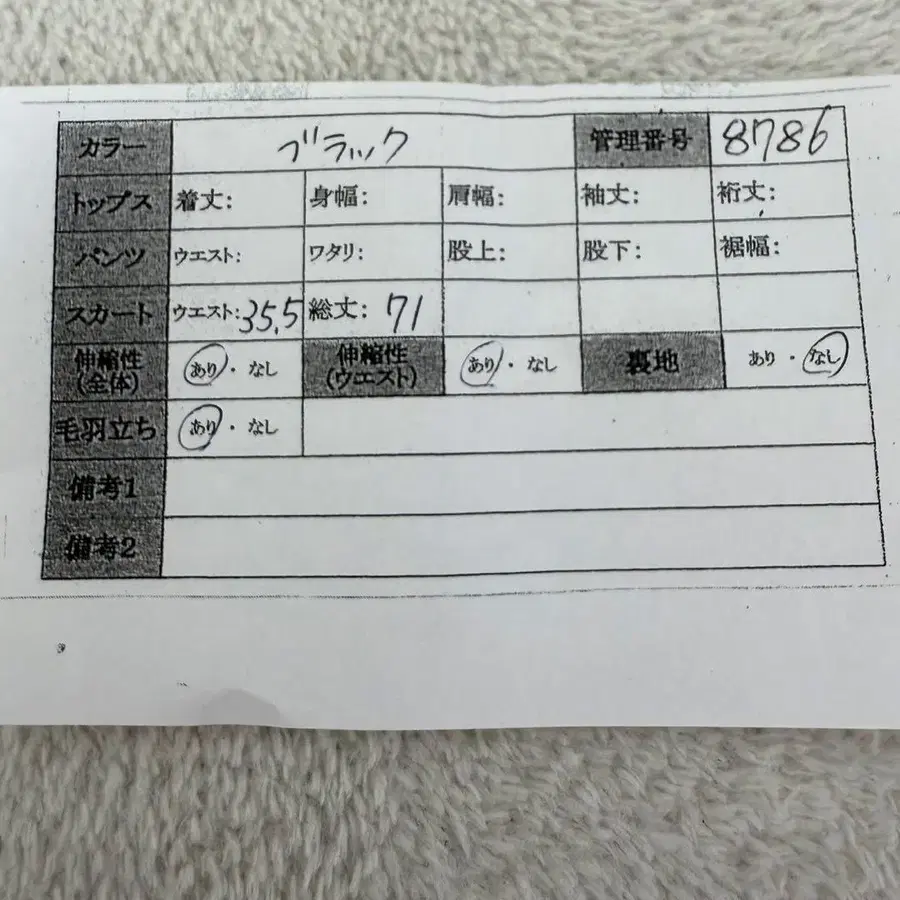 カラー ブラック 管理番号 8786
トップス 着丈: 身幅: 肩幅: 袖丈: 裄丈:
パンツ ウエスト: ワタリ: 股上: 股下: 裾幅:
スカート ウエスト:35.5 総丈: 71
伸縮性(全体) あり・なし 伸縮性(ウエスト) あり・なし 裏地 あり・なし
毛羽立ち あり・なし
備考1
備考2